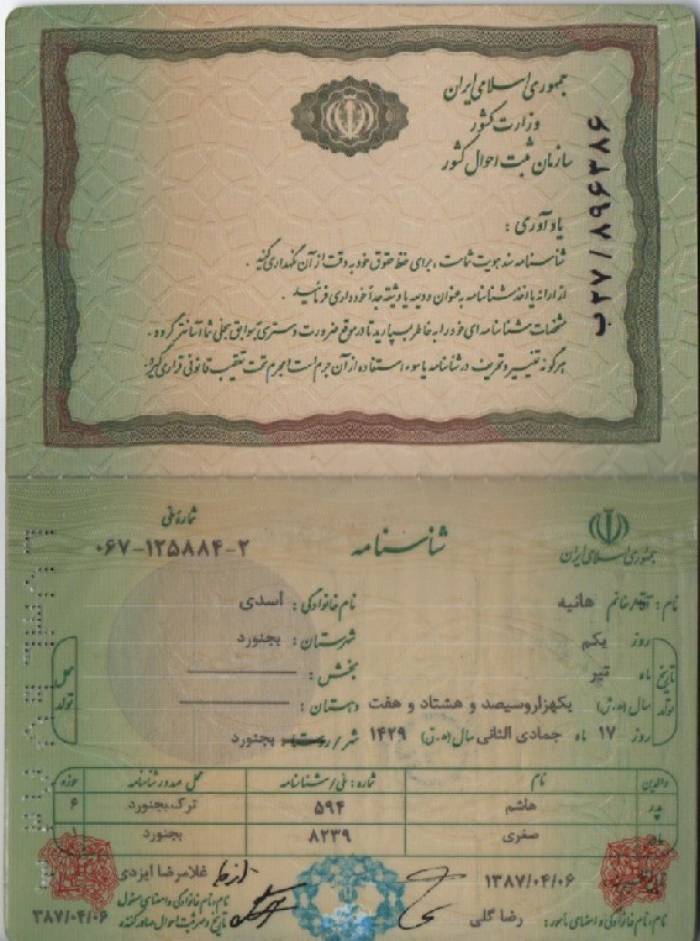 جمهوری اسلامی ایران
وزارت کشور
سازمان ثبت احوال کشور
ب۲۷/۸۹۶۳۸۶
یادآوری :
شناسنامه سند هویت شماست ، برای حفظ حقوق خود به دقت از آن نگهداری کنید .
از ارائه یا اخذ شناسنامه به عنوان ودیعه یا وثیقه جداً خودداری فرمائید .
مشخصات شناسنامه ای خود را به خاطر بسپارید تا در موقع ضرورت دسترسی به سوابق سجلی شما آسانتر گردد .
هرگونه تغییر و تحریف در شناسنامه یا سوء استفاده از آن جرم است و مجرم تحت تعقیب قانونی قرار می گیرد.
جمهوری اسلامی ایران
شناسنامه
شماره ملی
۰۶۷-۱۲۵۸۸۴-۲
نام : آقا/خانم هانیه
نام خانوادگی : اسدی
تاریخ تولد
روز یکم
شهرستان : بجنورد
محل تولد
ماه تیر
بخش :
سال (ه.ش) یکهزاروسیصد و هشتاد و هفت
دهستان :
روز ۱۷ ماه جمادی الثانی سال (ه.ق) ۱۴۲۹
شهر/روستا : بجنورد
والدین نام شماره : ملی/شناسنامه محل صدور شناسنامه حوزه
پدر هاشم ۵۹۴ ترک بجنورد ۶
مادر صغری ۸۲۳۹ بجنورد ۱
۱۳۸۷/۰۴/۰۶
غلامرضا ایزدی
نام ، نام خانوادگی و امضای مامور : رضا گلی
نام ، نام خانوادگی و امضای مسئول
تاریخ و مهر ثبت احوال صادر کننده
۳۸۷/۰۴/۰۶